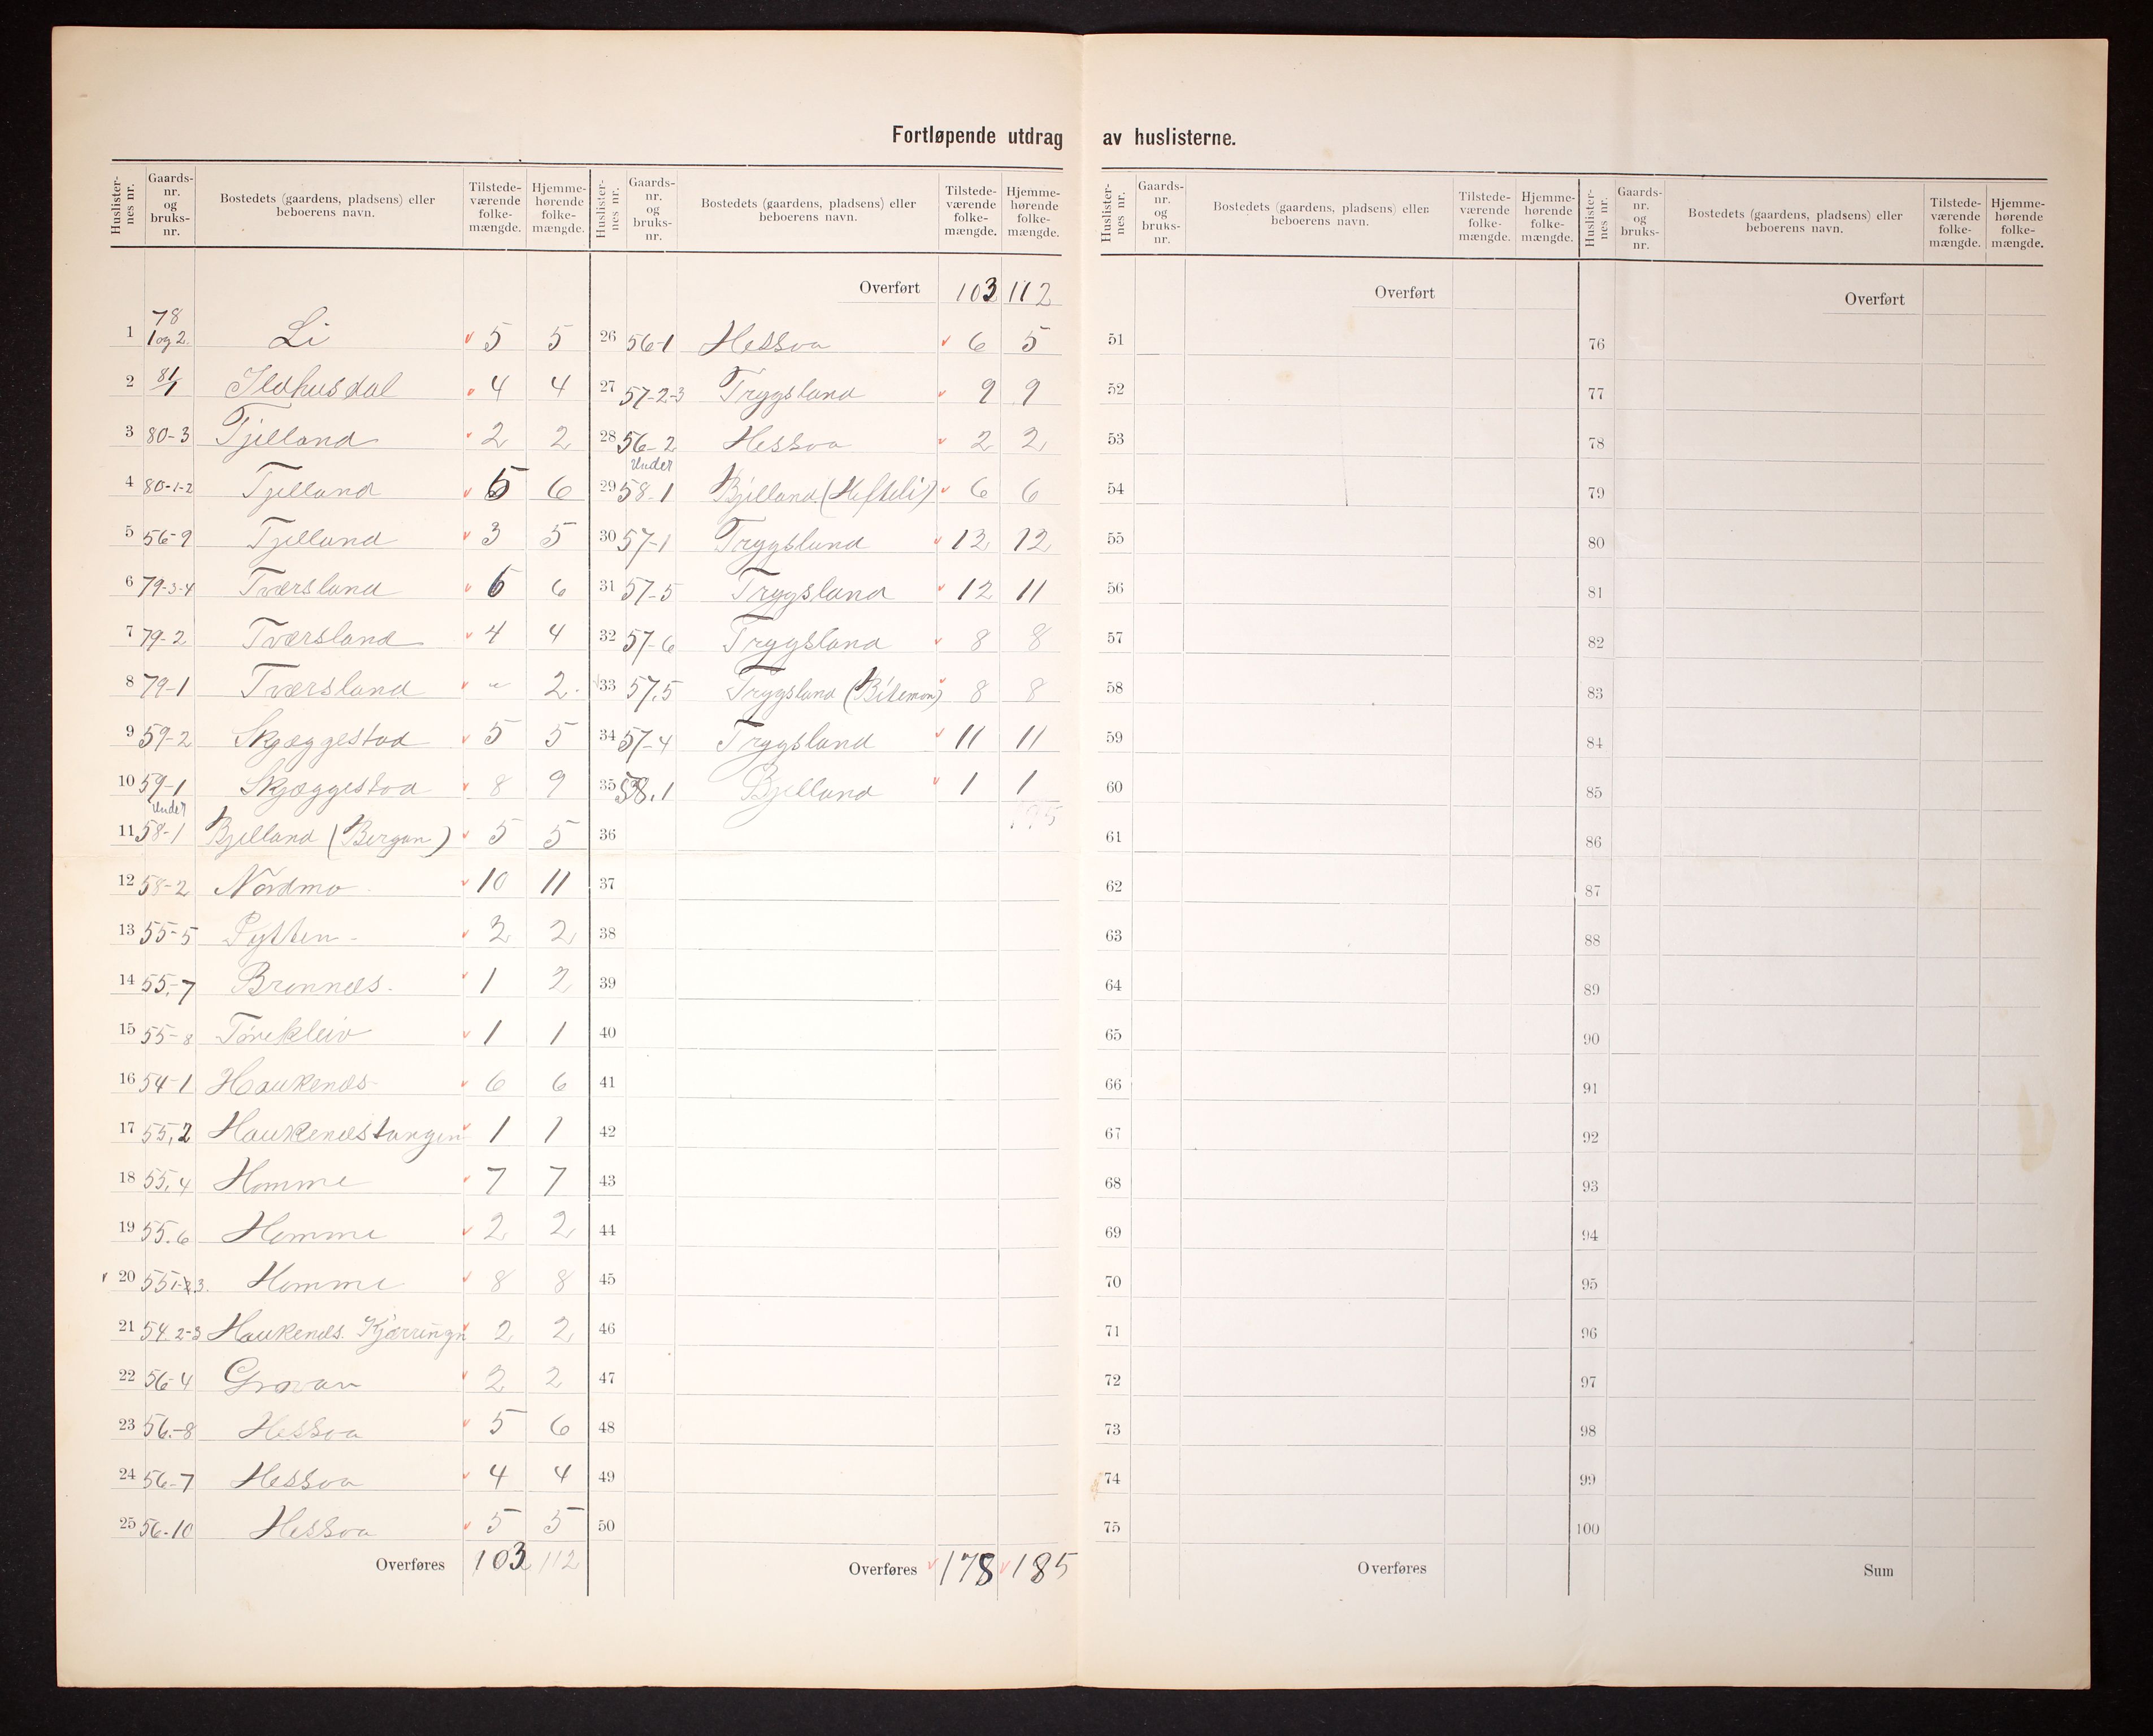 Fortløpende utdrag av huslisterne.
Huslisternes nr. Gaards-nr. og bruks-nr. Bostedets (gaardens, pladsens) eller beboerens navn. Tilstede-værende folke-mængde. Hjemme-hørende folke-mængde.
1 78 1 og 2. Li 5 5
2 81/1 Ildhusdal 4 4
3 80-3 Tjelland 2 2
4 80-1-2 Tjelland 5 6
5 56-9 Tjelland 3 5
6 79-3-4 Tværsland 6 6
7 79-2 Tværsland 4 4
8 79-1 Tværsland - 2.
9 59-2 Skjæggestad 5 5
10 59-1 Skjæggestad 8 9
11 Under 58-1 Bjelland (Bergan) 5 5
12 58-2 Nordmo 10 11
13 55-5 Pytten - 2 2
14 55-7 Brønnes. 1 2
15 55-8 Tørekleiv 1 1
16 54-1 Haukenæs 6 6
17 55,2 Haukenæstangen 1 1
18 55,4 Homme 7 7
19 55.6 Homme 2 2
20 55 1-2.3. Homme 8 8
21 54 2-3 Haukenæs. 2 2
22 56-4 Grøvan 2 2
23 56.-8 Hessaa 5 6
24 56-7 Hessaa 4 4
25 56-10 Hessaa 5 5
Overføres 103 112
Huslisternes nr. Gaards-nr. og bruks-nr. Bostedets (gaardens, pladsens) eller beboerens navn. Tilstede-værende folke-mængde. Hjemme-hørende folke-mængde.
Overført 103 112
26 56-1 Hessaa 6 5
27 57-2-3 Trygsland 9 9
28 56-2 Hessaa 2 2
29 Under 58-1 Bjelland (Hefteli) 6 6
30 57-1 Trygsland 12 12
31 57-5 Trygsland 12 11
32 57-6 Trygsland 8 8
33 57.5 Trygsland (Bitemon) 8 8
34 57-4 Trygsland 11 11
35 58.1 Bjelland 1 1
36
37
38
39
40
41
42
43
44
45
46
47
48
49
50
Overføres 178 185
Huslisternes nr. Gaards-nr. og bruks-nr. Bostedets (gaardens, pladsens) eller beboerens navn. Tilstede-værende folke-mængde. Hjemme-hørende folke-mængde.
Overført
51
52
53
54
55
56
57
58
59
60
61
62
63
64
65
66
67
68
69
70
71
72
73
74
75
Overføres
Huslisternes nr. Gaards-nr. og bruks-nr. Bostedets (gaardens, pladsens) eller beboerens navn. Tilstede-værende folke-mængde. Hjemme-hørende folke-mængde.
Overført
76
77
78
79
80
81
82
83
84
85
86
87
88
89
90
91
92
93
94
95
96
97
98
99
100
Sum